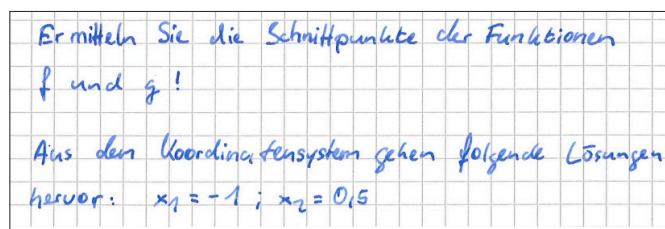 Ermitteln Sie die Schnittpunkte der Funktionen
f und g !
Aus dem Koordinatensystem gehen folgende Lösungen
hervor: x₁ = -1 ; x₂ = 0,5